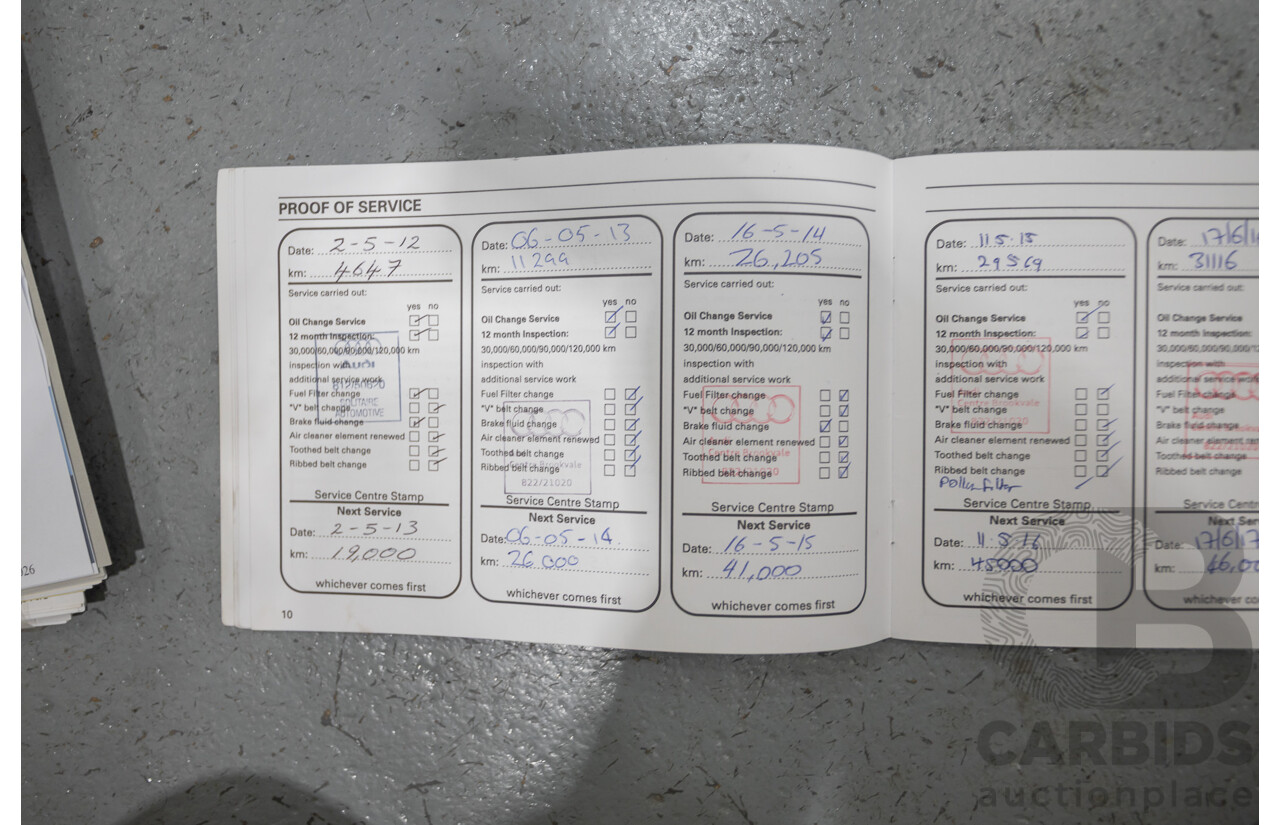 PROOF OF SERVICE
Date: 2-5-12
km: 4647
Service carried out:
yes no
Oil Change Service
12 month Inspection:
30,000/60,000/90,000/120,000 km
inspection with
additional service work
Fuel Filter change
"V" belt change
Brake fluid change
Air cleaner element renewed
Toothed belt change
Ribbed belt change
Audi
SOLITAIRE
AUTOMOTIVE
Service Centre Stamp
Next Service
Date: 2-5-13
km: 19,000
whichever comes first
10
Date: 06-05-13
km: 11299
Service carried out:
yes no
Oil Change Service
12 month Inspection:
30,000/60,000/90,000/120,000 km
inspection with
additional service work
Fuel Filter change
"V" belt change
Brake fluid change
Air cleaner element renewed
Toothed belt change
Ribbed belt change
Centre Brookvale
822/21020
Service Centre Stamp
Next Service
Date: 06-05-14
km: 26000
whichever comes first
Date: 16-5-14
km: 26,205
Service carried out:
yes no
Oil Change Service
12 month Inspection:
30,000/60,000/90,000/120,000 km
inspection with
additional service work
Fuel Filter change
"V" belt change
Brake fluid change
Air cleaner element renewed
Toothed belt change
Ribbed belt change
Centre Brookvale
822/21020
Service Centre Stamp
Next Service
Date: 16-5-15
km: 41,000
whichever comes first
Date: 11.5.15
km: 29569
Service carried out:
yes no
Oil Change Service
12 month Inspection:
30,000/60,000/90,000/120,000 km
inspection with
additional service work
Fuel Filter change
"V" belt change
Brake fluid change
Air cleaner element renewed
Toothed belt change
Ribbed belt change
Pollen filter
Centre Brookvale
Service Centre Stamp
Next Service
Date: 11.5.16
km: 45000
whichever comes first
Date: 17/6/1
km: 31116
Service carried out:
Oil Change Service
12 month Inspection:
30,000/60,000/90,000/12
inspection with
additional service work
Fuel Filter change
"V" belt change
Brake fluid change
Air cleaner element ren
Toothed belt change
Ribbed belt change
Service Centre
Next Ser
Date: 17/6/17
km: 46,00
whichever co
CARBIDS
auctionplace